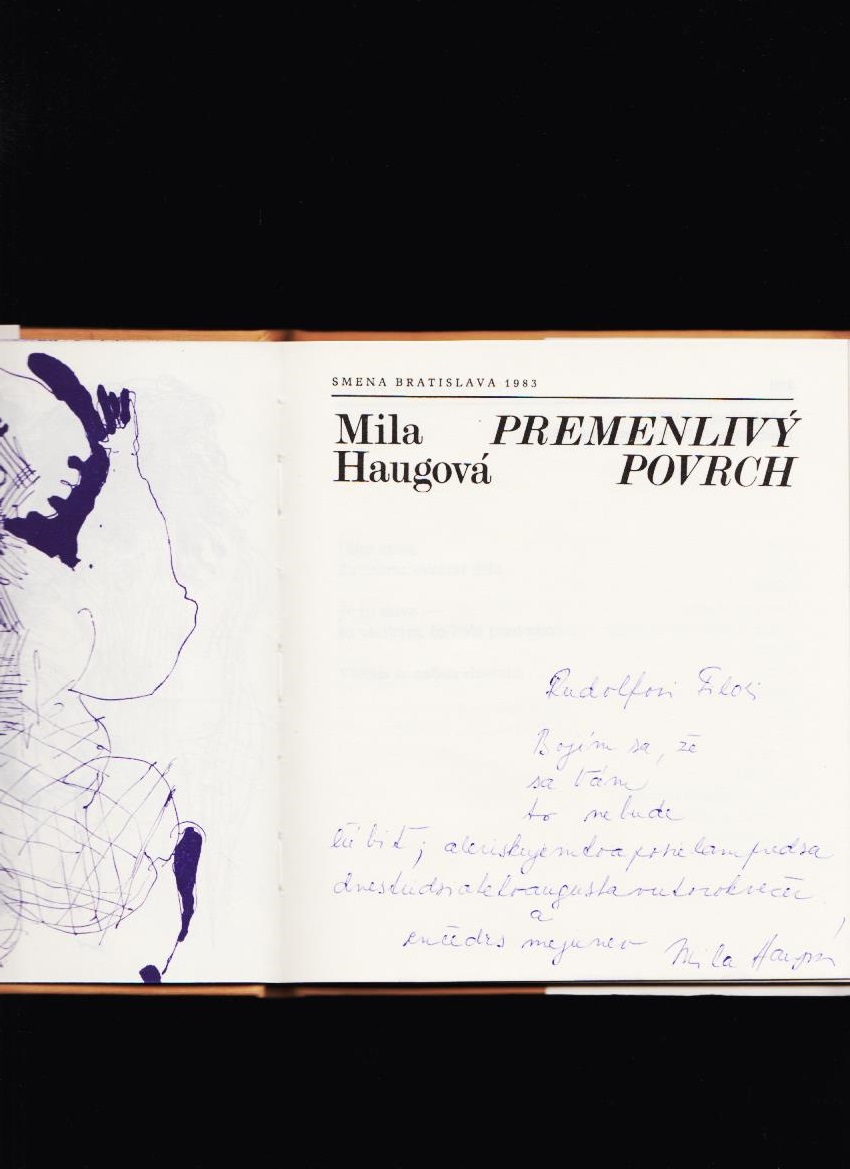 SMENA BRATISLAVA 1983
Mila PREMENLIVÝ
Haugová POVRCH
Rudolfovi Filovi
Bojím sa, že
sa Vám
to nebude
ľúbiť; aleriskujemtoaposielampredsa
dnestridsiatehoaugustavutorokvečer
a
Mila Haugová